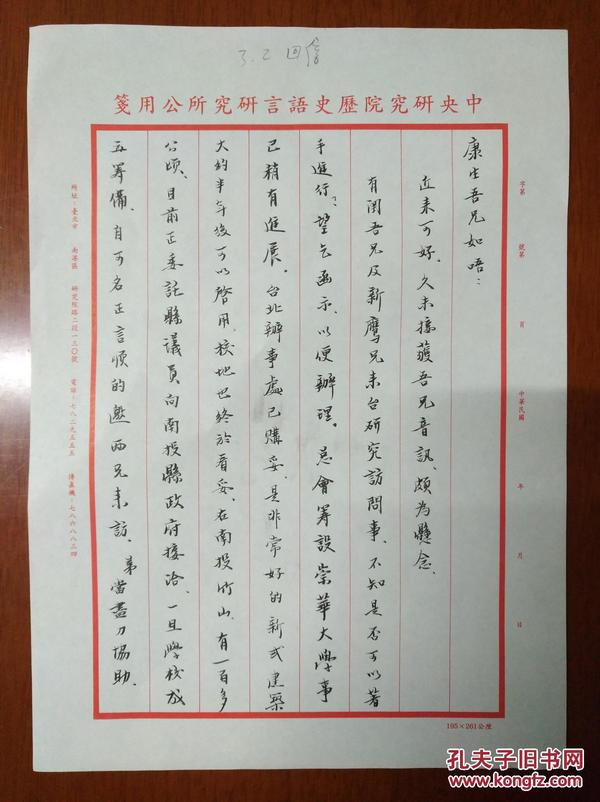 3.2 回信
中央研究院歷史語言研究所公用箋
字第 號第 頁 中華民國 年 月 日
康生吾兄如唔：
近来可好。久未接獲吾兄音訊，頗为懸念。
有関吾兄及新鹰兄来台研究訪問事，不知是否可以着
手進行？望乞函示，以便辦理。
總會筹設崇華大學事
已稍有進展。台北辦事處已購妥，是非常好的新式建築
大約半年後可以啓用。校地也終於看妥，在南投竹山，有一百多
公頃。目前正委託縣議員向南投縣政府接洽，一旦學校成
立筹備，自可名正言顺的邀两兄来訪。弟當盡力協助。
所址：臺北市 南港區 研究院路二段一三〇號 電話：七八二九五五五 傳真機：七八六八八三四
195×261公厘
孔夫子旧书网
www.kongfz.com